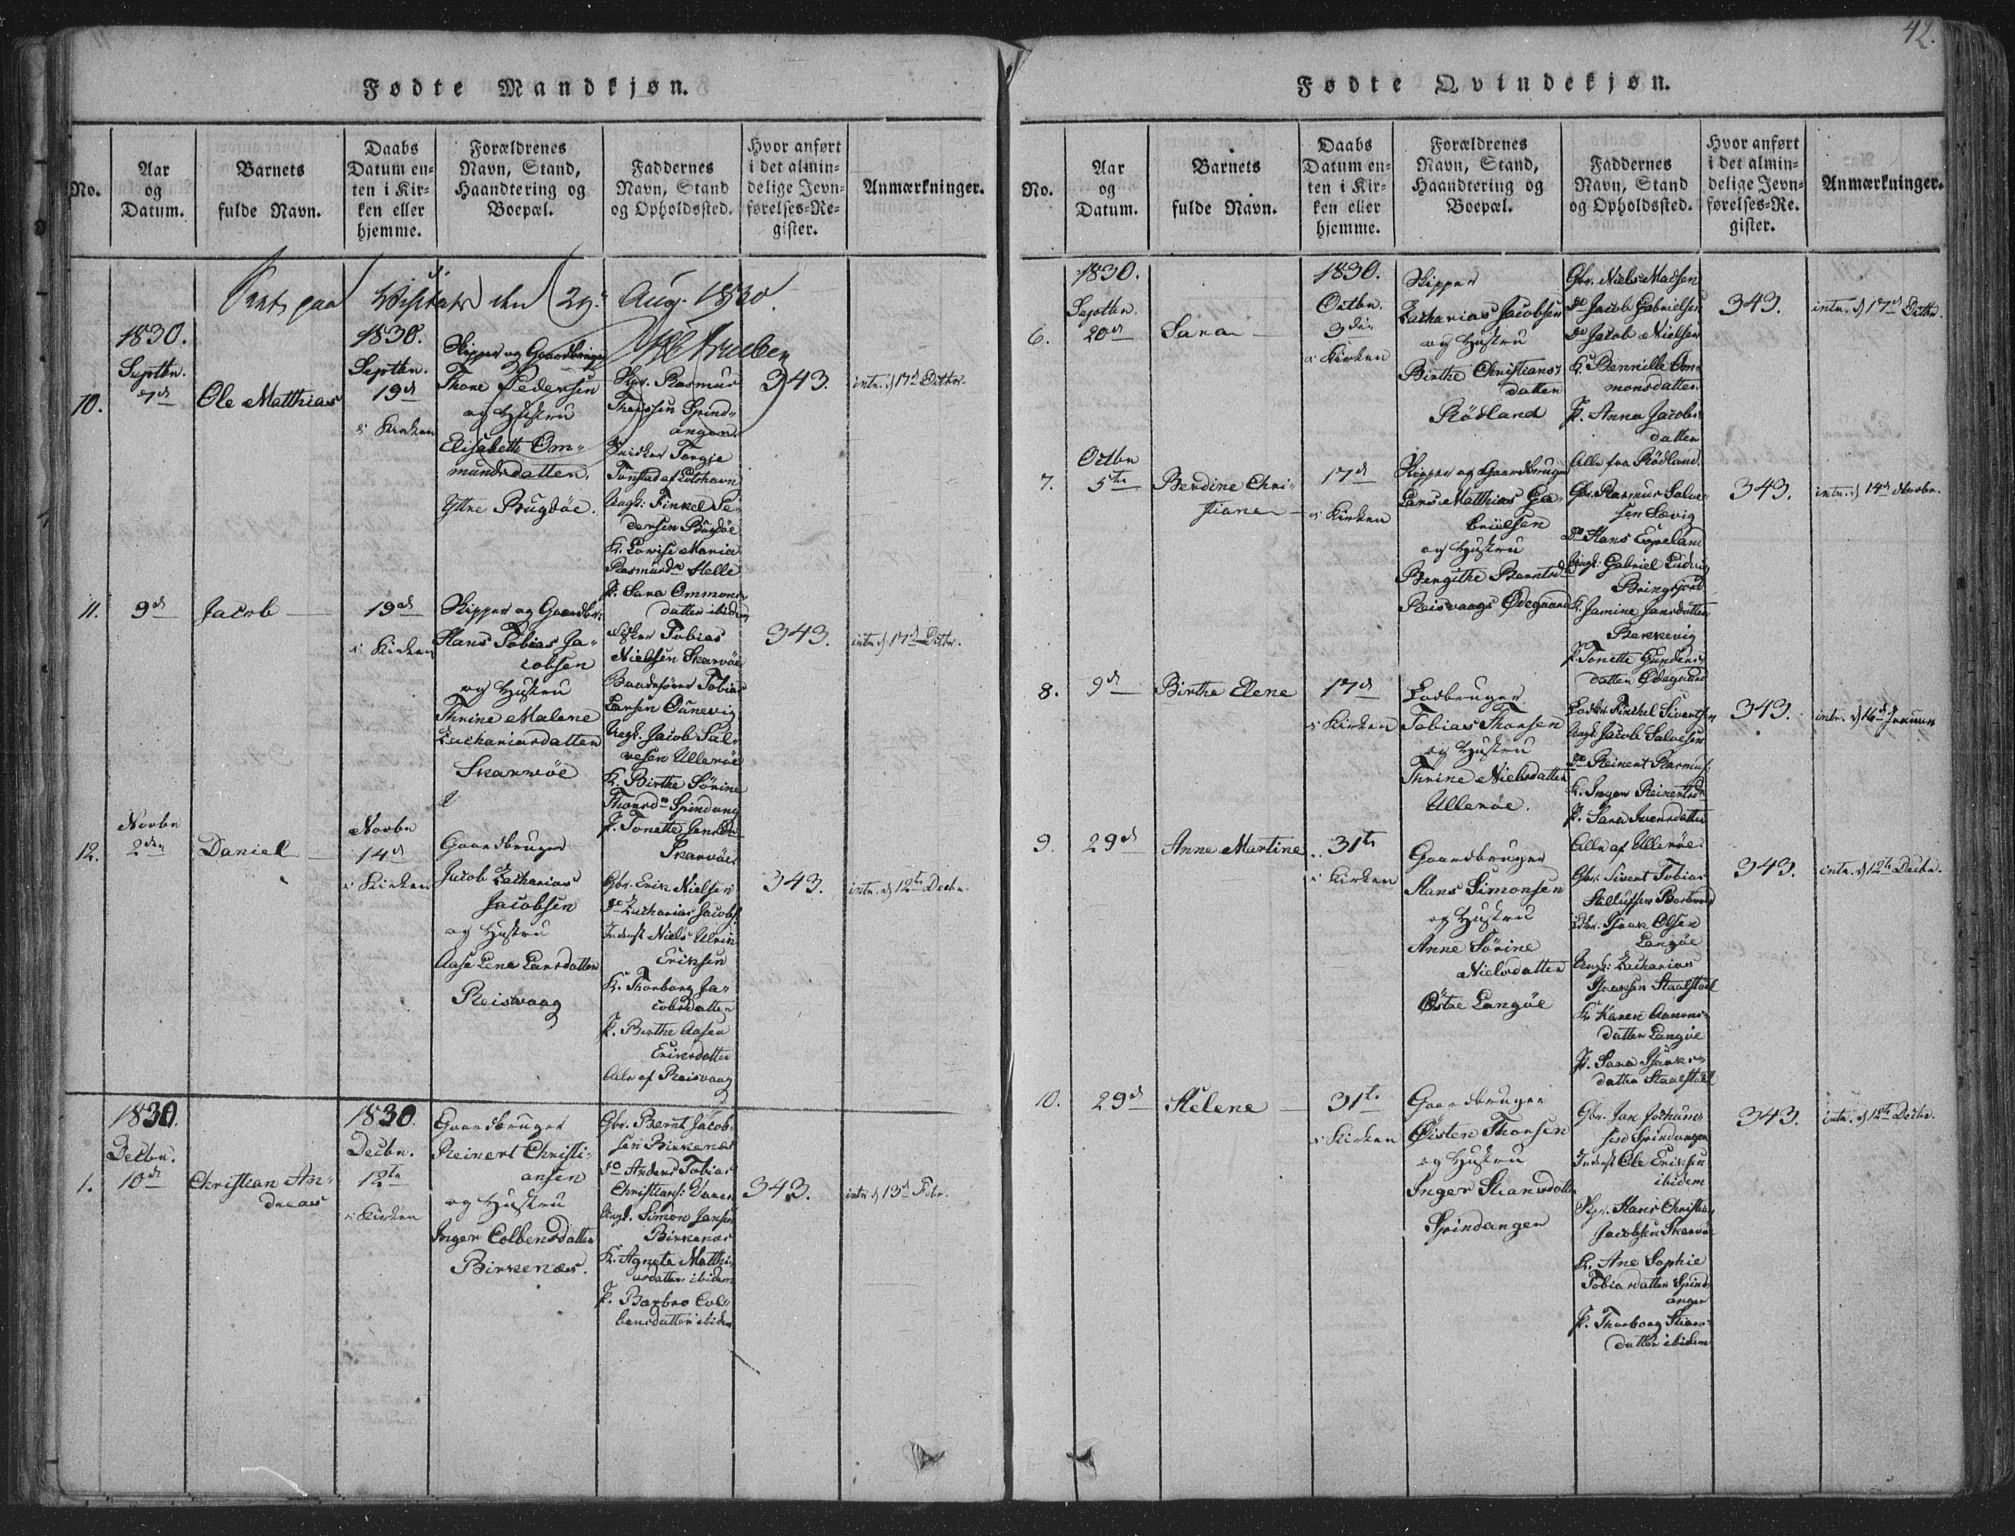 42.
Fødte Mandkjøn.
No.
Aar
og
Datum.
Barnets
fulde Navn.
Daabs
Datum en-
ten i Kir-
ken eller
hjemme.
Forældrenes
Navn, Stand,
Haandtering og
Boepæl.
Faddernes
Navn, Stand
og Opholdssted.
Hvor anført
i det almin-
delige Jevn-
førelses-Re-
gister.
Anmærkninger.
Visitats den 29 Aug. 1830
10.
1830.
Septbr.
7de
Ole Matthias
1830.
Septbr.
19de
i Kirken
Skipper og Gaardbruger
Thore Pedersen
og Hustru
Elisabeth Om-
mundsdatten.
Yttre Brugdøe.
Rasmus
Spind-
angen
Tonstad
Finkel Pe-
dersen Bugdøe
K. Lovise Maria
Rasmusd. Helle
P. Sara Ommons
datter ibidem
343.
intr. d 17de Octbr.
11.
9de
Jacob
19de
i Kirken
Skipper og Gaardbr.
Hans Tobias Ja-
cobsen
og Hustru
Thrine Malene
Zachariasdatten
Skarvøe
Tobias
Nielsen Skarvøe
Tobias
Larsen
Ungk. Jacob Sal-
vesen Ullerøe
K. Birthe Sørine
Thorsd. Spindang
P. Tonette Jensd.
Skarvøe
343.
intr. d 17de Octbr.
12.
Novbr
2den
Daniel
Novbr
14de
i Kirken
Gaardbruger
Jacob Zacharias
Jacobsen
og Hustru
Aase Lene Larsdatten
Reisvaag
Gbr. Erik Nielsen
do Zacharias Jacobs.
Inderst Niels Ulrik
Eriksen
K. Thorborg Ja-
cobsdatten
P. Birthe Aasen
Eriksdatten
Alle af Reisvaag
343.
intr. d 12te Decbr.
1.
1830.
Decbr.
10de
Christian An-
dreas
1830
Decbr.
12te
i Kirken
Gaardbruger
Reinert Christi-
ansen
og Hustru
Inger Colbensdatten
Birkenæs.
Gbr. Bernt Jacob-
sen Birkenæs
do Anders Tobias
Christians:
Ungk. Simon Jansen
Birkenæs
K. Agneta Matthi-
asdatten ibidem
P. Barbro Col-
bensdatten ibidem
343.
intr. d 13de Febr.
Fødte Qvindekjøn.
No.
Aar
og
Datum.
Barnets
fulde Navn.
Daabs
Datum en-
ten i Kir-
ken eller
hjemme.
Forældrenes
Navn, Stand,
Haandtering og
Boepæl.
Faddernes
Navn, Stand
og Opholdssted.
Hvor anført
i det almin-
delige Jevn-
førelses-Re-
gister.
Anmærkninger.
6.
1830.
Septbr.
20de
Sara
1830.
Octbr.
3die
i Kirken
Skipper
Zacharias Jacobsen
og Hustru
Birthe Christians-
datten
Rødland
Gbr. Niels Madsen
do Jacob Gabrielsen
do Jacob Nielsen
K. Bennille Om-
monsdatten
P. Anna Jacobs-
datten
Alle fra Rødland.
343.
intr. d 17de Octbr.
7.
Octbr
5te
Berdine Chri-
stiane
17de
i Kirken
Skipper og Gaardbruger
Lars Matthias Ga-
brielsen
og Hustru
Bergithe Berntsd.
Reisvaags Ødegaard
Gbr. Rasmus Salve-
sen Sævig
do Hans Espeland
Ungk. Gabriel Ludvig
Bringsjord
K. Jamine Jansdatten
Bekkevig
P. Tonette Gunders-
datten Ødegaard
343.
intr. d 14de Novbr.
8.
9de
Birthe Elene
17de
i Kirken
Lodbruger
Tobias Thorsen
og Hustru
Thrine Nielsdatten
Ullerøe.
Lodbr. Sivertsen
Ungk. Jacob Salvesen
do Reinert Rasmus.
K. Inger Reinertsd.
P. Sara Iversdatten
Alle af Ullerøe.
343.
9.
29de
Anne Martine
31te
i Kirken
Gaardbruger
Hans Simonsen
og Hustru
Anne Sørine
Nielsdatten
Østre Langøe
Gbr. Sivert Tobias
Olsen
Langøe
Ungk. Zacharias
Isaksen Staalstøl
K. Karen Aanons-
datten Langøe
P. Sara Isaks-
datten Staalstøl
343.
intr. d 12te Decbr.
10.
29de
Helene
31te
i Kirken
Gaardbruger
Øisten Thorsen
og Hustru
Inger Stiansdatten
Spindangen
Gbr. Jan Jochum-
sen Spindangen
Inderst Ole Eriksen
ibidem
Hans Christian
Jacobsen Skarvøe
K. Ane Sophie
Tobiasdatten Spind-
angen
P. Thorborg Stians-
datten ibidem
343.
intr. d 12te Decbr.